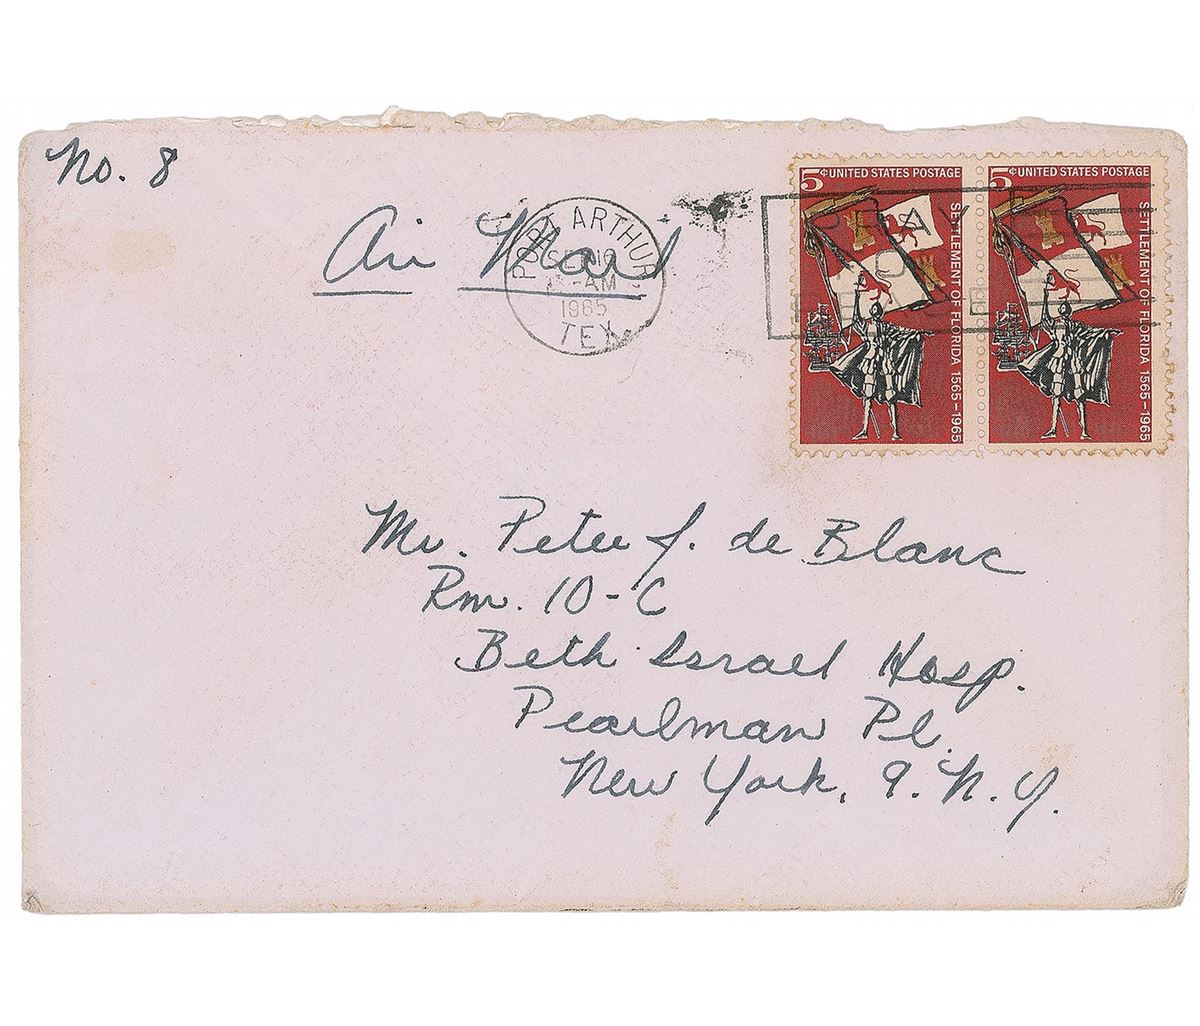 No. 8
Air Mail
PORT ARTHUR
AM
1965
TEX
5¢ UNITED STATES POSTAGE
SETTLEMENT OF FLORIDA 1565-1965
5¢ UNITED STATES POSTAGE
SETTLEMENT OF FLORIDA 1565-1965
Mr. Peter J. de Blanc
Rm. 10-C
Beth Israel Hosp.
Pearlman Pl.
New York, 9. N.Y.